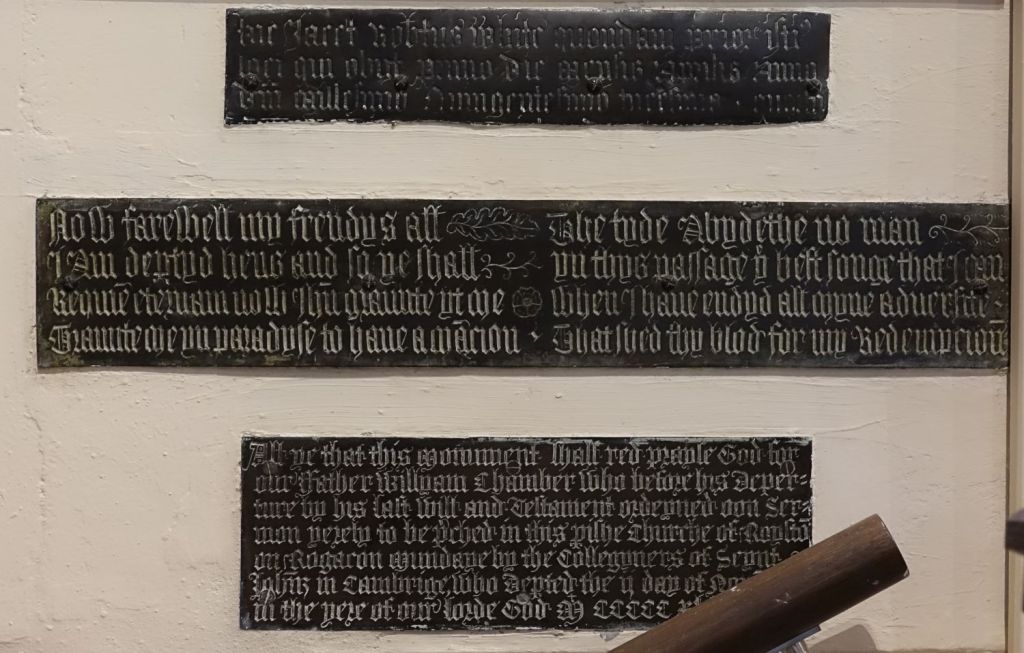 hic Jacet Robtus White quondam prior isti'
loci qui obiit primo die mensis Aprilis Anno
dni millesimo
Now farewell my frendys all The tyde Abydethe no man
I Am deptyd hens and so ye shall yn thys passage ye best songe that I can
Requiē eternam now Jhu graunte yt me When I haue endyd all myne aduersite
Graunte me yn paradyse to haue a mācion That shed thy blod for my Redempcion
All ye that this moniment shall red prayse God for
our Father Willyam Chamber who before his Deper-
ture by his last will and Testament ordeyned oon Ser-
mon yerely to be pched in this pishe Churche of Royston
on Rogacon mundaye by the Collegyners of Seynt
Johns in Cambrige who Depted the day of
in the yere of our lorde God M CCCCC